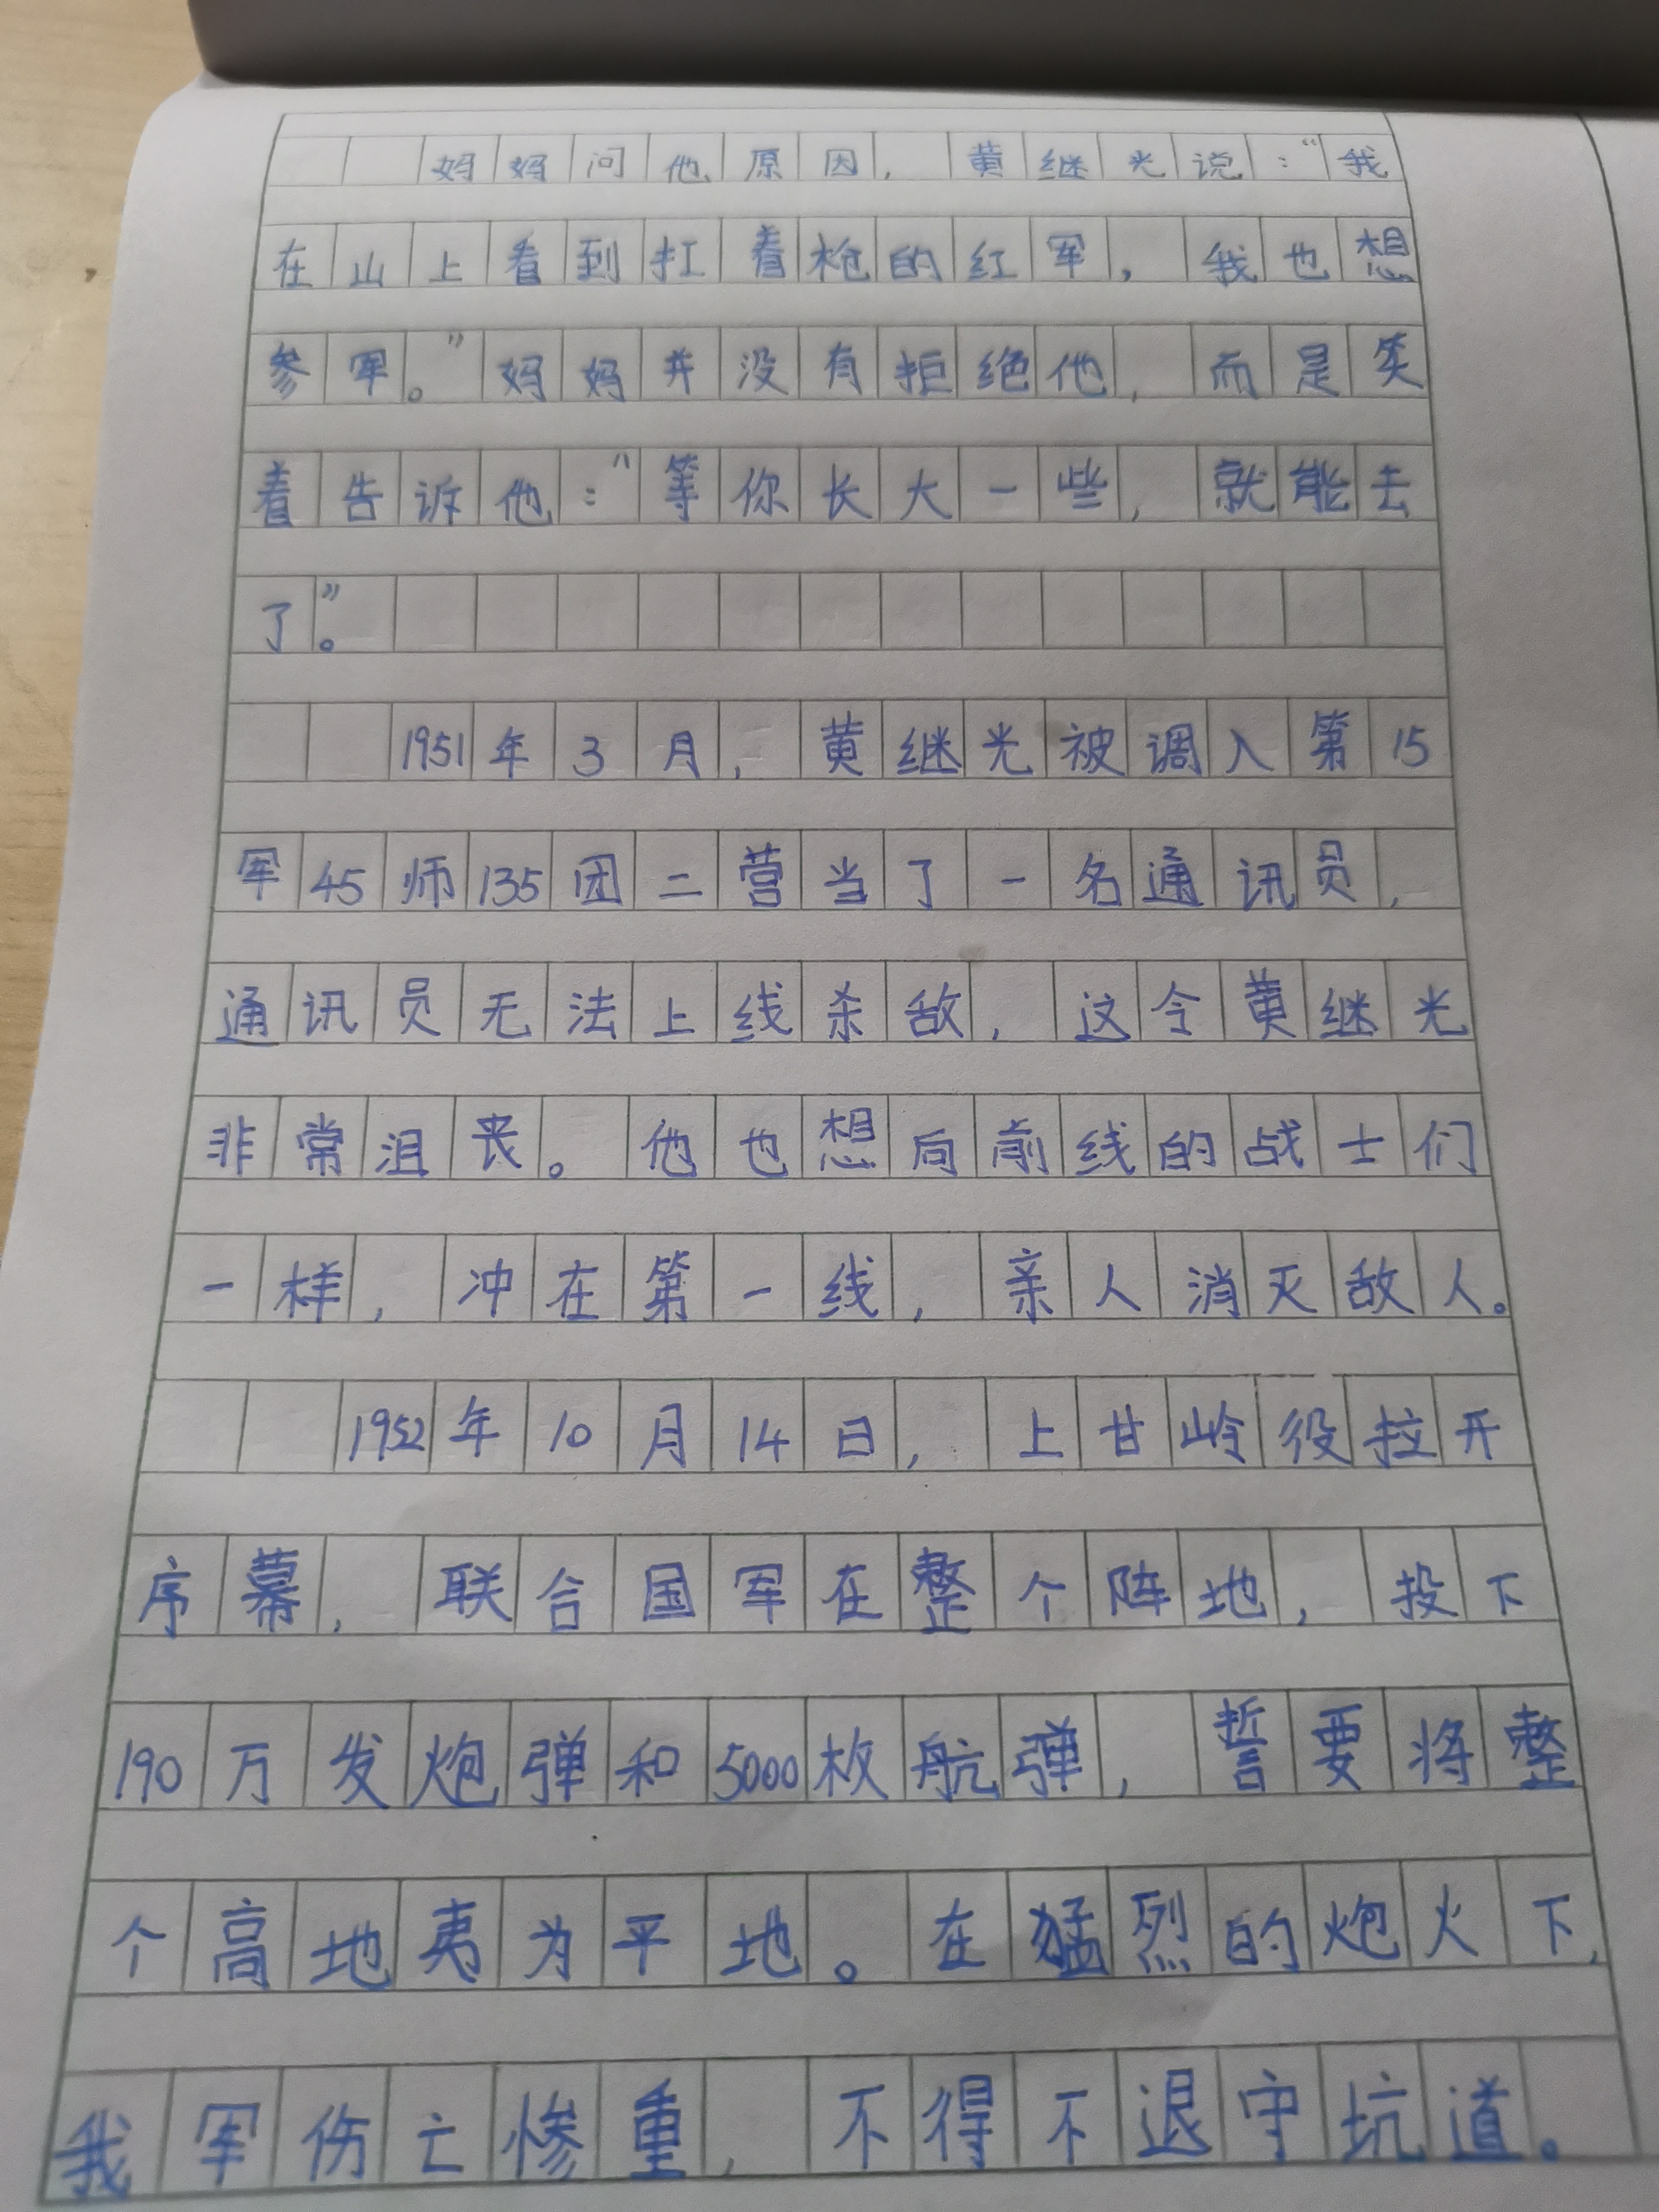 妈妈问他原因，黄继光说：“我
在山上看到扛着枪的红军，我也想
参军。”妈妈并没有拒绝他，而是笑
着告诉他：“等你长大一些，就能去
了。”
1951年3月，黄继光被调入第15
军45师135团二营当了一名通讯员，
通讯员无法上线杀敌，这令黄继光
非常沮丧。他也想向前线的战士们
一样，冲在第一线，亲人消灭敌人。
1952年10月14日，上甘岭役拉开
序幕，联合国军在整个阵地，投下
190万发炮弹和5000枚航弹，誓要将整
个高地夷为平地。在猛烈的炮火下，
我军伤亡惨重，不得不退守坑道。